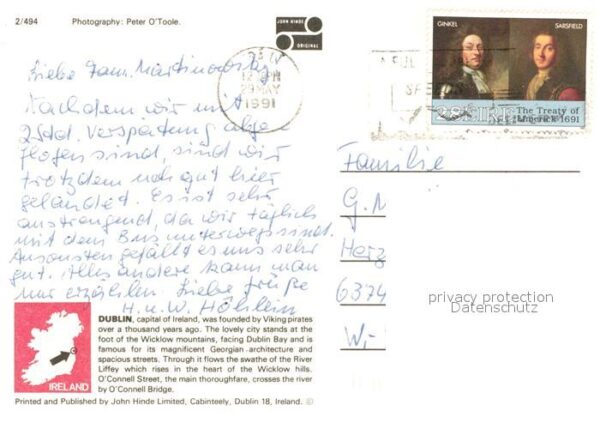 2/494 Photography: Peter O'Toole.
JOHN HINDE
ORIGINAL
12 PM
29 MAY
1991
GINKEL SARSFIELD
28 EIRE The Treaty of
Limerick 1691
Liebe Fam. Martinowsky
Nachdem wir mit
2 Std. Verspätung abge
flogen sind, sind wir
trotzdem noch gut hier
gelandet. Es ist sehr
anstrengend, da wir täglich
mit dem Bus unterwegs sind.
Ansonsten gefällt es uns sehr
gut. Alles andere kann man
nur erzählen. Liebe Grüße
H. u. W. Höhlein
Familie
G. M
Herz
6374
W.-
privacy protection
Datenschutz
IRELAND
DUBLIN, capital of Ireland, was founded by Viking pirates
over a thousand years ago. The lovely city stands at the
foot of the Wicklow mountains, facing Dublin Bay and is
famous for its magnificent Georgian architecture and
spacious streets. Through it flows the swathe of the River
Liffey which rises in the heart of the Wicklow hills.
O'Connell Street, the main thoroughfare, crosses the river
by O'Connell Bridge.
Printed and Published by John Hinde Limited, Cabinteely, Dublin 18, Ireland. ©